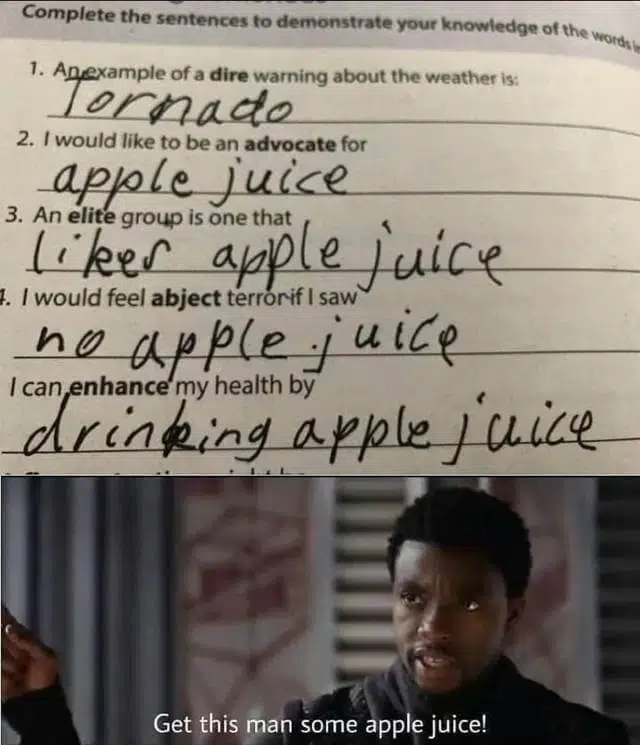 Complete the sentences to demonstrate your knowledge of the words
1. An example of a dire warning about the weather is:
Tornado
2. I would like to be an advocate for
apple juice
3. An elite group is one that
likes apple juice
. I would feel abject terror if I saw
no apple juice
I can enhance my health by
drinking apple juice
Get this man some apple juice!